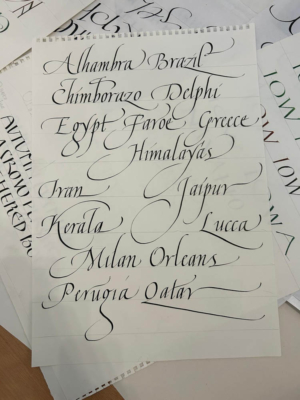 Alhambra Brazil
Chimborazo Delphi
Egypt Faroe Greece
Himalayas
Iran Jaipur
Kerala Lucca
Milan Orleans
Perugia Qatar